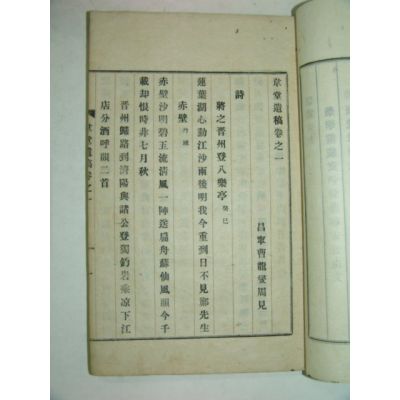 韋堂遺稿卷之一
昌寧曺龍燮周見
詩
將之晋州登八樂亭 癸巳
蓮葉湖心動江沙雨後明我今重到日不見鄭先生
赤壁 丹城
赤壁沙明碧玉流淸風一陣送扁舟蘇仙風韻今千
載却恨時非七月秋
晋州歸路到濟陽與諸公登獨釣岩乘凉下江
店分酒呼韻二首
韋堂遺稿卷之一